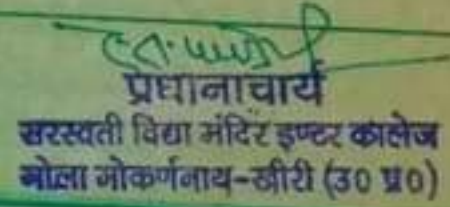 प्रधानाचार्य
सरस्वती विद्या मंदिर इण्टर कालेज
गोला गोकर्णनाथ-खीरी (उ० प्र०)